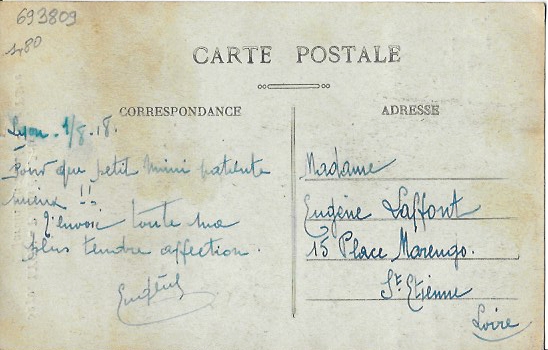 693809
1,80
CARTE POSTALE
CORRESPONDANCE
ADRESSE
Lyon. 1/8.18.
Pour que petit Mimi patiente
mieux !!
J'envoie toute ma
plus tendre affection.
Eugène
Madame
Eugène Laffont
15 Place Marengo.
St. Etienne
Loire